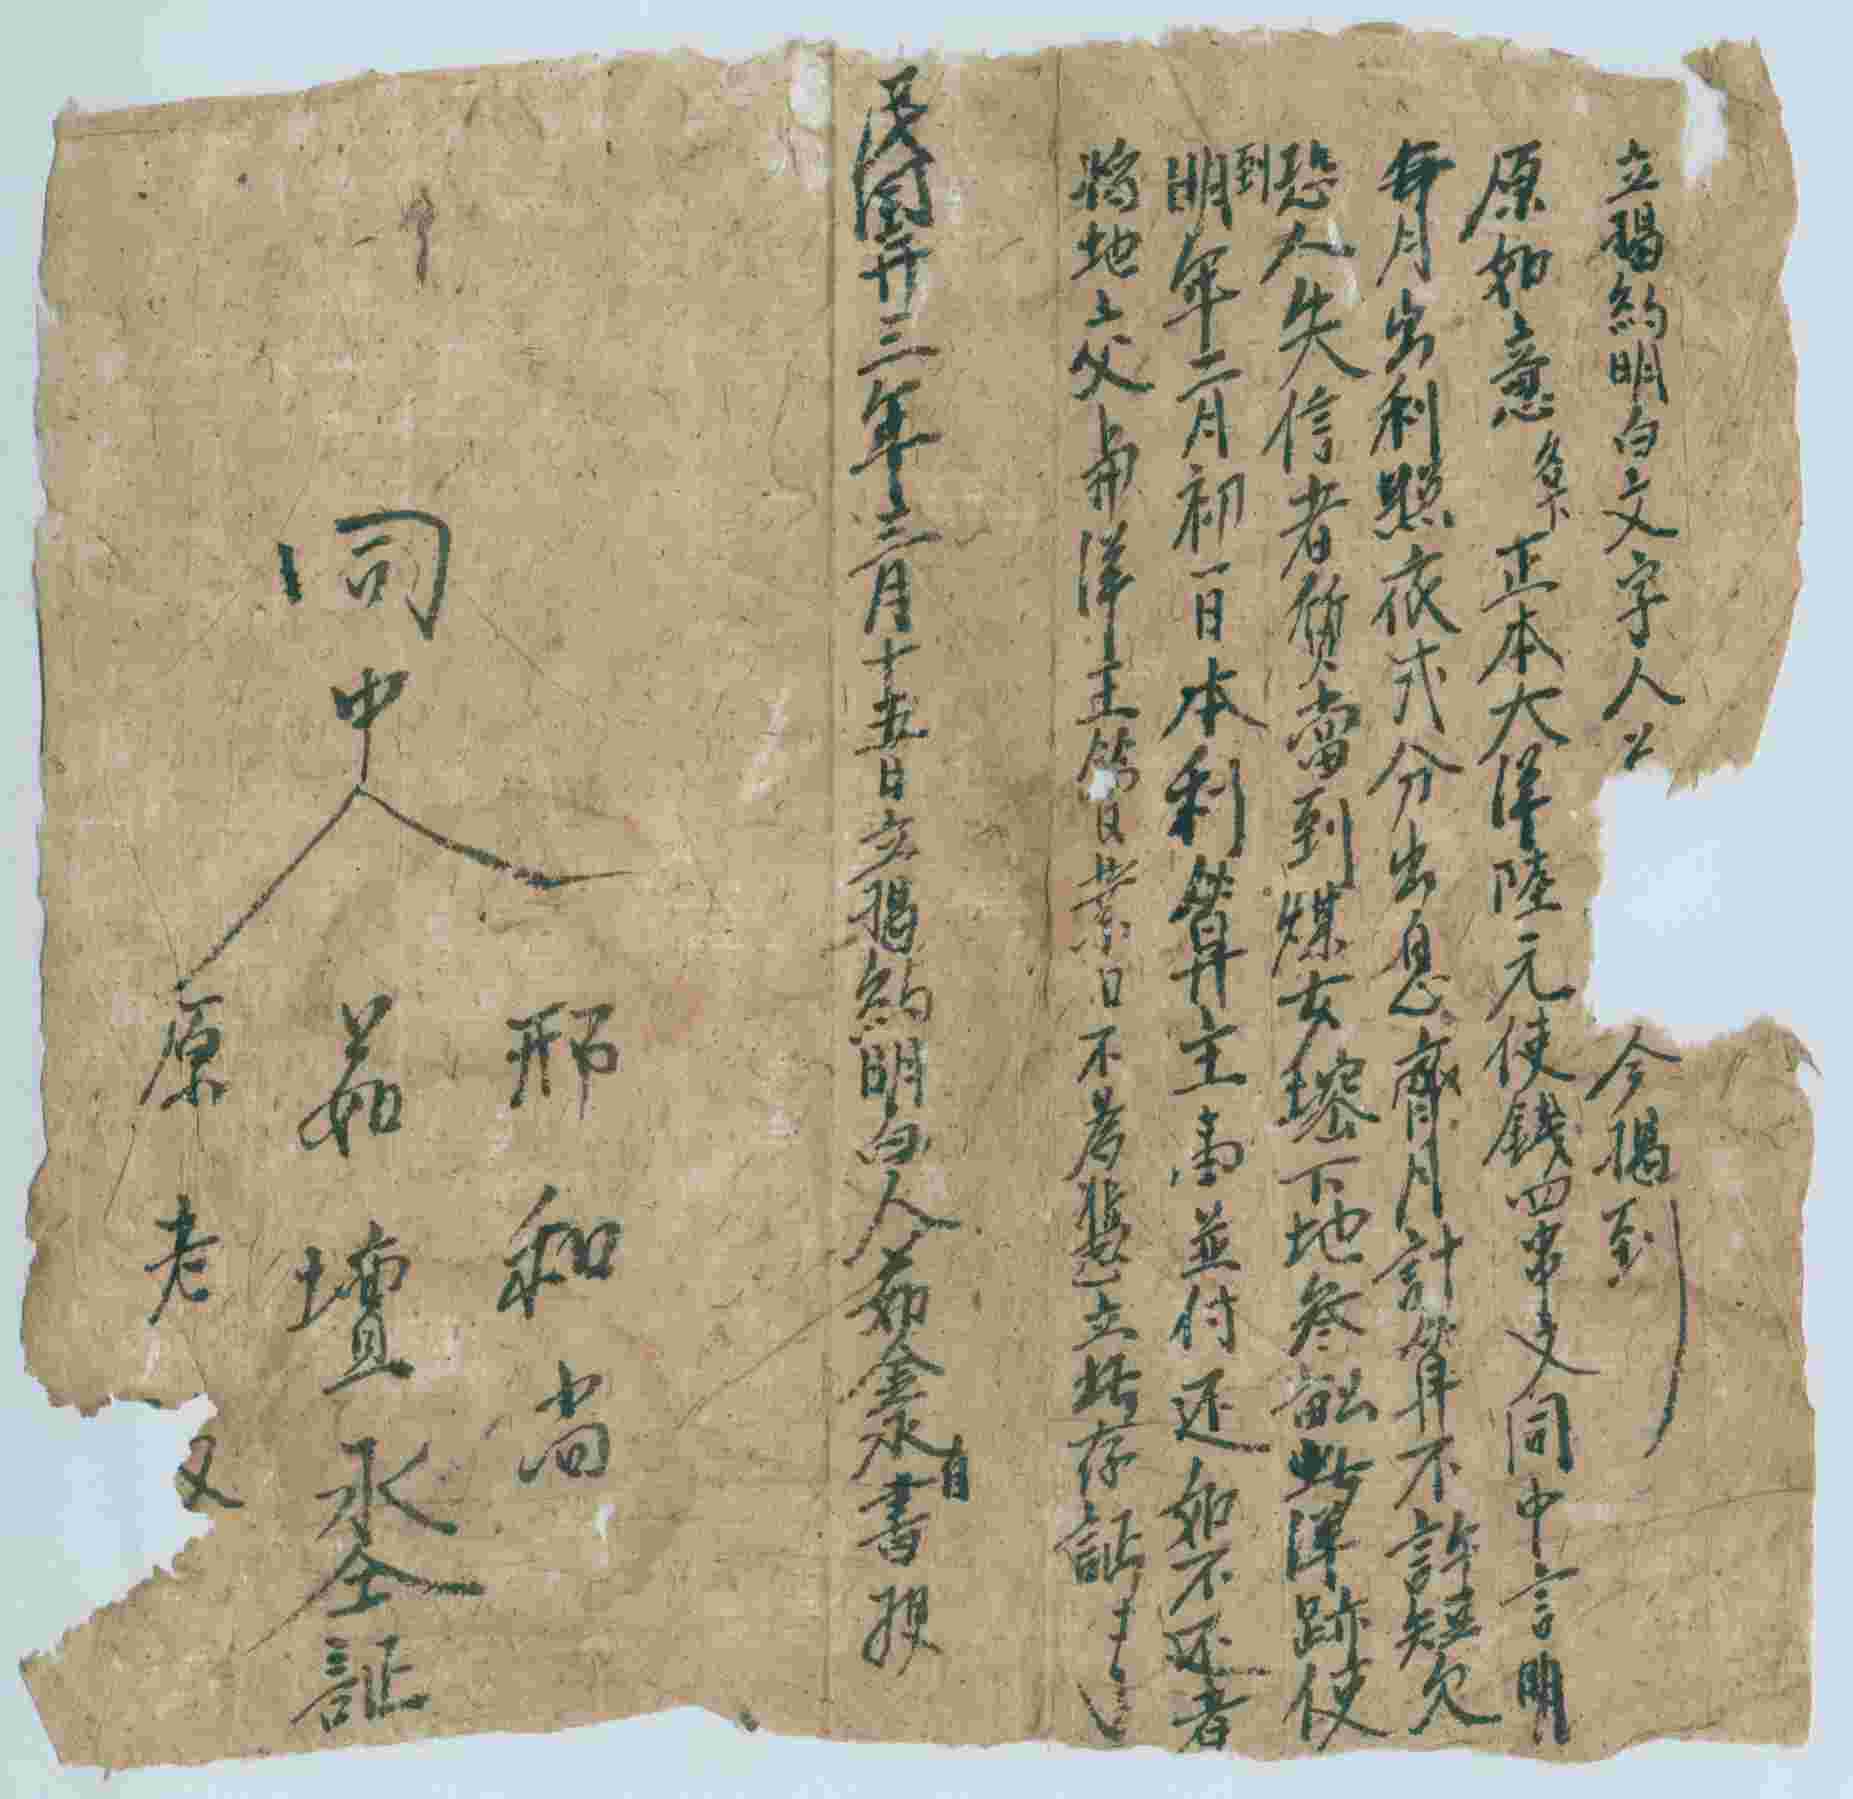 立揭約明白文字人 今揭到
原如意名下正本大洋陸元使錢四串文同中言明
每月出利照依弍分出息齊月計算不許短欠
恐人失信者質當到煤女墢下地叁畝此洋跡使
到明年二月初一日本利算主壹並付還如不还者
將地立交與洋主管日業日不為憑立此存証
民国廿三年三月十五日立揭約明白人茹金永自書押
同中人
邢和尚
茹壇永仝証
原老